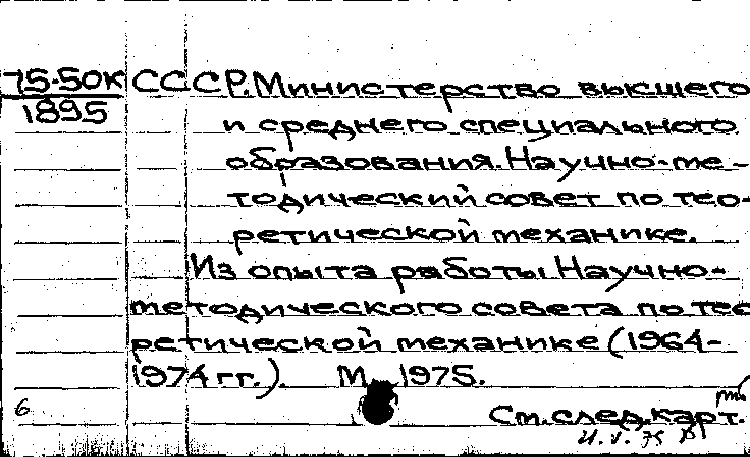 75-50К СССР. Министерство высшего
1895 и среднего специального
образования. Научно-ме-
тодический совет по тео-
ретической механике.
Из опыта работы Научно-
методического совета по тео
ретической механике (1964-
1974 гг.). М., 1975.
6
См. след. карт.